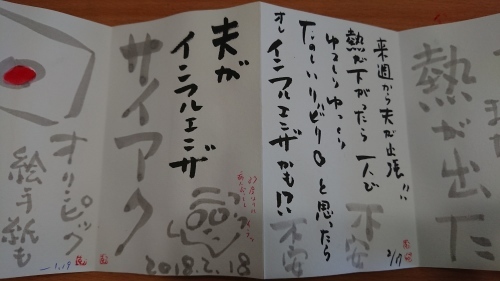 また
熱が出た
来週から夫が出張!!
熱が下がったら 一人で
ゆっくりゆっくり
と思ったら
オレ インフルエンザかも!?
不安
不安
2/17
夫が
インフルエンザ
サイアク
2018.2.18
オリンピック
絵手紙も